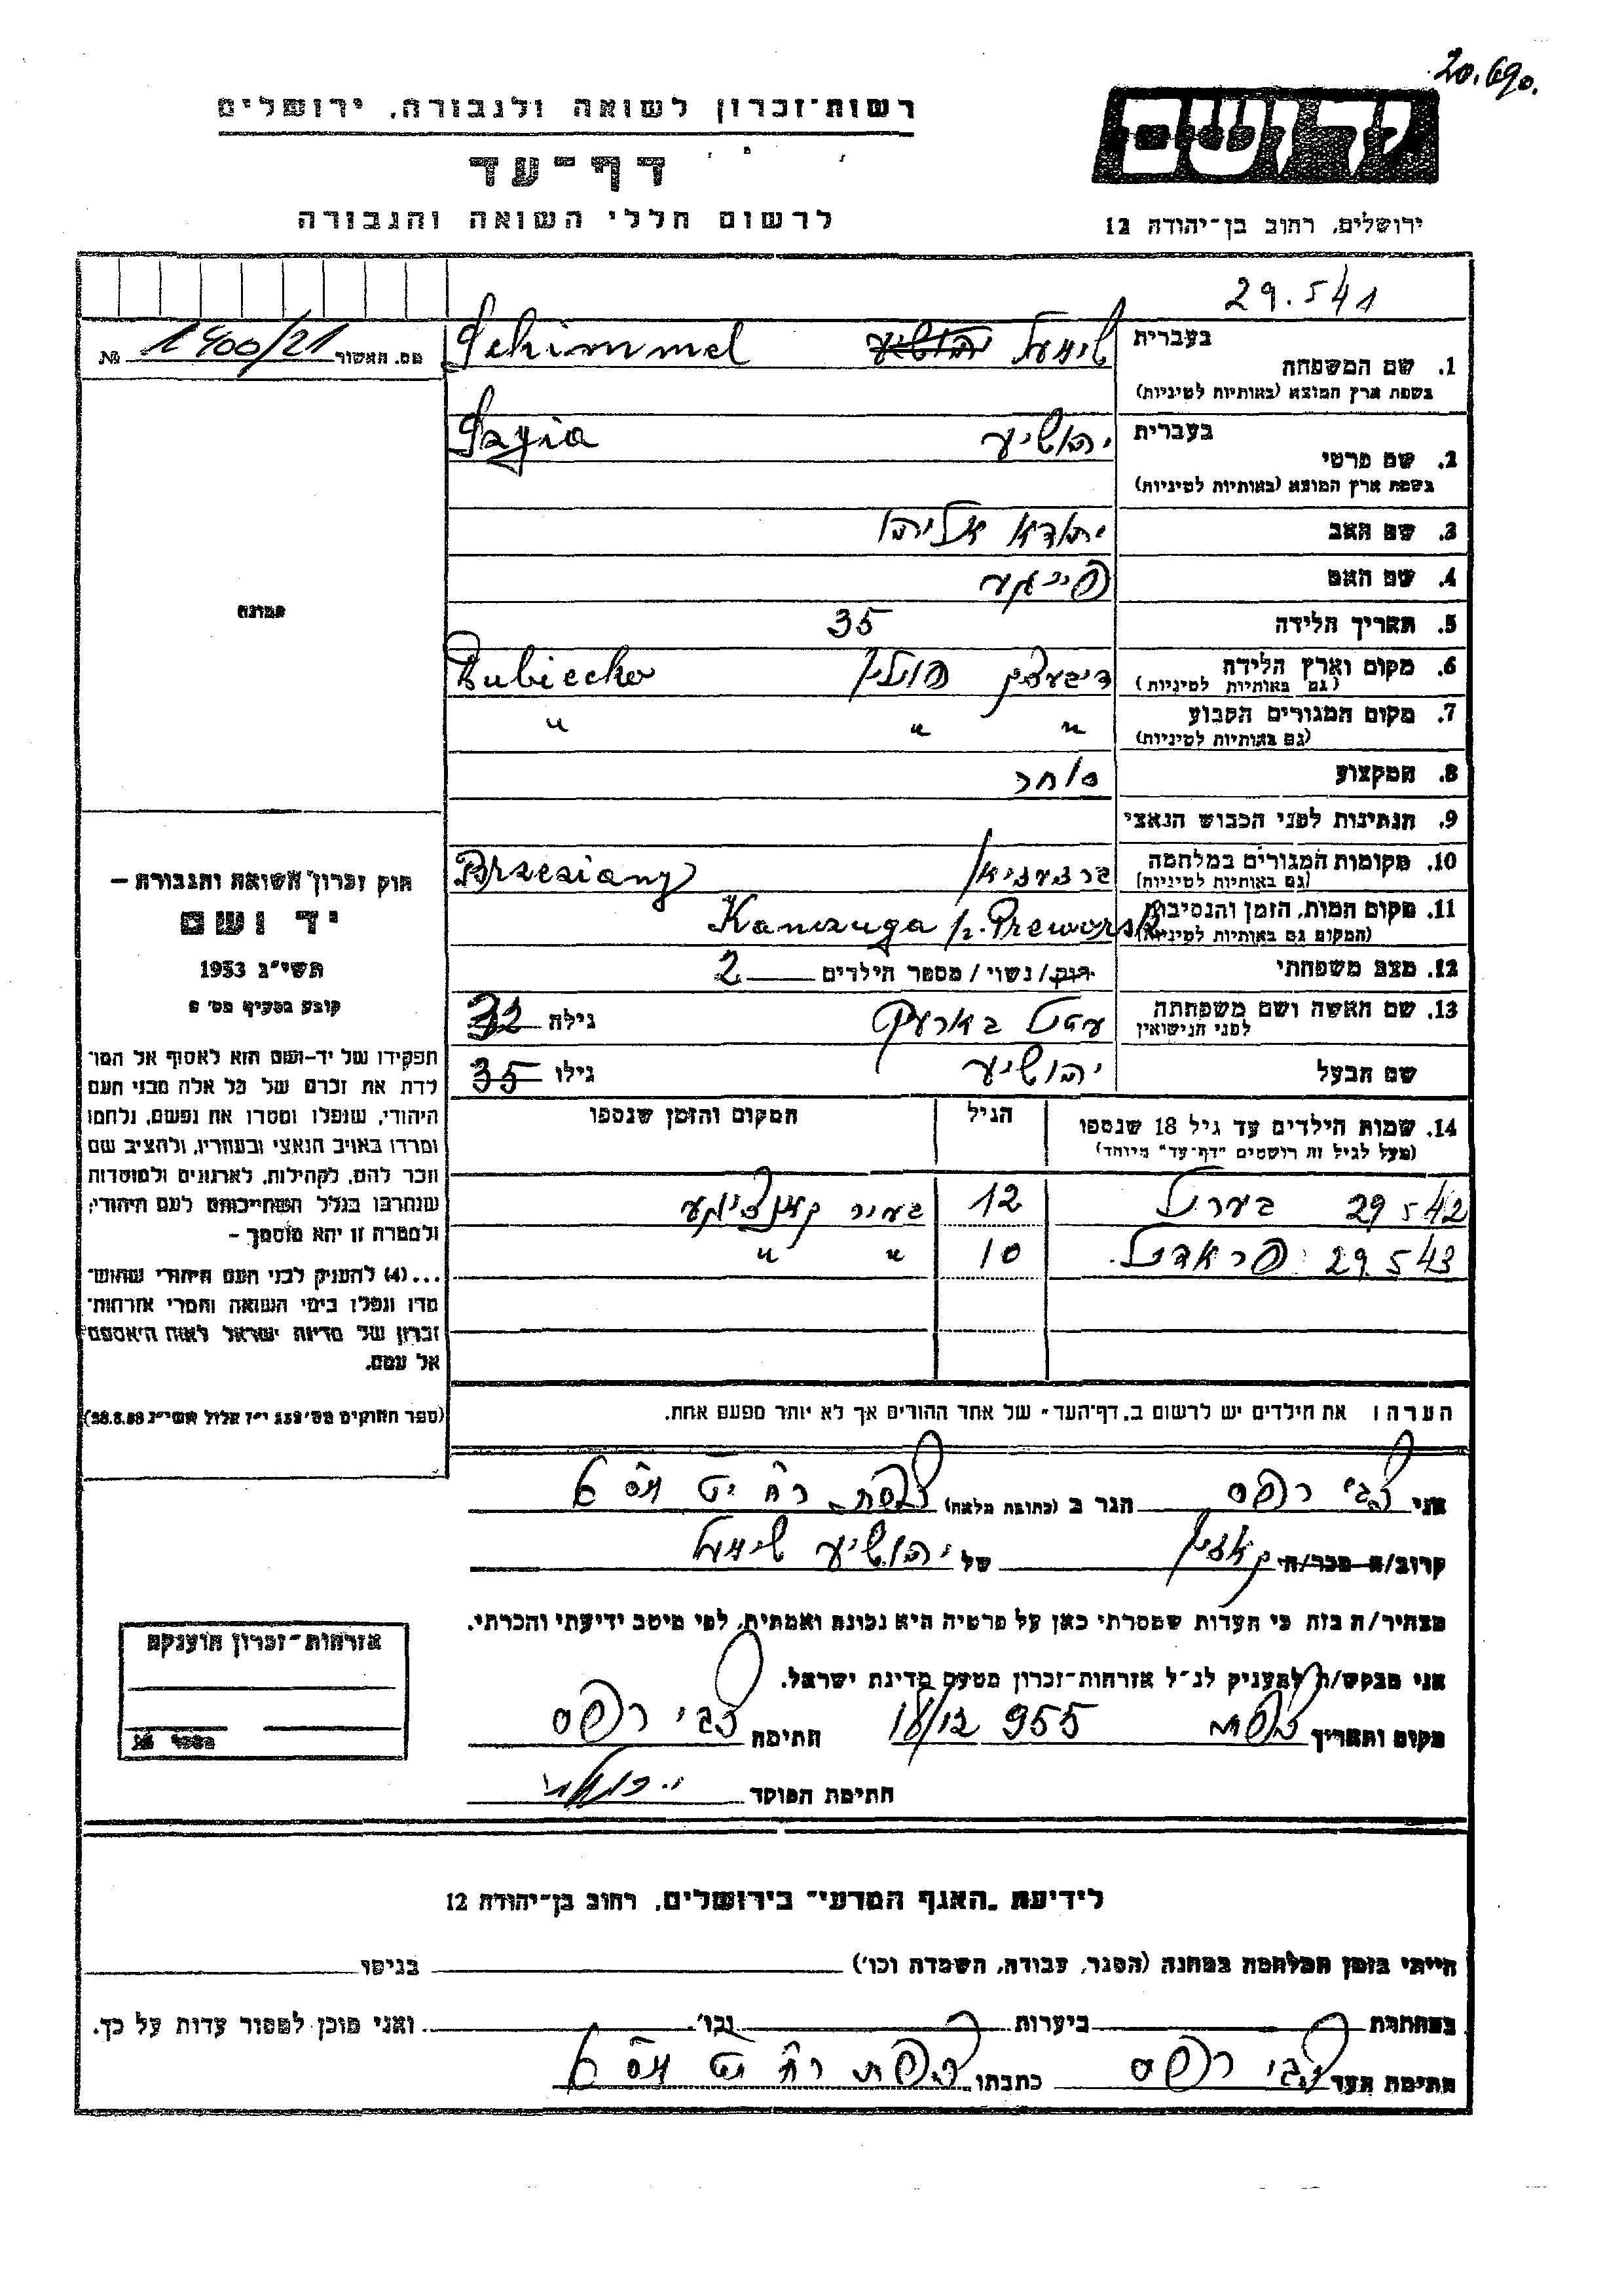 20.690.
רשות־זכרון לשואה ולגבורה, ירושלים
דף־עד
לרשום חללי השואה והגבורה
ירושלים, רחוב בן־יהודה 12
29.541
מס. האשור 1400/21 №
בעברית
1. שם המשפחה שימעל Schimmel
בשפת ארץ המוצא (באותיות לטיניות)
בעברית
2. שם פרטי יהושיע Szyia
בשפת ארץ המוצא (באותיות לטיניות)
3. שם האב יהודא אליהו
4. שם האם פייגע
5. תאריך הלידה 35
6. מקום וארץ הלידה דיבעצק פולין Dubiecko
(גם באותיות לטיניות)
7. מקום המגורים הקבוע " " "
(גם באותיות לטיניות)
8. המקצוע סוחר
9. הנתינות לפני הכבוש הנאצי
10. מקומות המגורים במלחמה Brzeziany
(גם באותיות לטיניות)
11. מקום המות, הזמן והנסיבות Kanczuga p. Preworsk
(המקום גם באותיות לטיניות)
12. מצב משפחתי רוק / נשוי / מספר הילדים 2
13. שם האשה ושם משפחתה גילה 32
לפני הנישואין
שם הבעל יהושיע גילו 35
14. שמות הילדים עד גיל 18 שנספו הגיל המקום והזמן שנספו
(מעל לגיל זה רושמים "דף־עד" מיוחד)
29542 בערל 12 בעיר קאנציגע
29543 פראדיל 10 " "
הערה: את הילדים יש לרשום ב„דף־העד" של אחד ההורים אך לא יותר מפעם אחת.
תמונה
חוק זכרון השואה והגבורה —
יד ושם
תשי"ג 1953
קובע בסעיף מס'
תפקידו של יד־ושם הוא לאסוף אל המו־
לדת את זכרם של כל אלה מבני העם
היהודי, שנפלו ומסרו את נפשם, נלחמו
ומרדו באויב הנאצי ובעוזריו, ולהציב שם
וזכר להם, לקהילות, לארגונים ולמוסדות
שנחרבו בגלל השתייכותם לעם היהודי;
ולמטרה זו יהא מוסמך —
...(4) להעניק לבני העם היהודי שהוש־
מדו ונפלו בימי השואה והמרי אזרחות־
זכרון של מדינת ישראל לאות היאספם
אל עמם.
אני צבי רפס הגר ב (כתובת מלאה) צפת
קרוב/ה מכר/ה של יהושיע שימעל
מצהיר/ה בזה כי העדות שמסרתי כאן על פרטיה היא נכונה ואמתית, לפי מיטב ידיעתי והכרתי.
אני מבקש/ת להעניק לנ"ל אזרחות־זכרון מטעם מדינת ישראל.
מקום ותאריך צפת 18/12 955 חתימה צבי רפס
חתימת הפוקד
אזרחות־זכרון הוענקה
מספר №
לידיעת „האגף המדעי" בירושלים, רחוב בן־יהודה 12
הייתי בזמן המלחמה במחנה (הסגר, עבודה, השמדה וכו') בגיטו
במחתרת ביערות וכו' ואני מוכן למסור עדות על כך.
חתימת העד צבי רפס כתבתו צפת